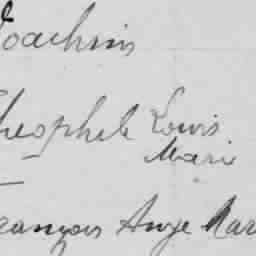 Joachim
Theophile Louis
Marie
François Ange Mar